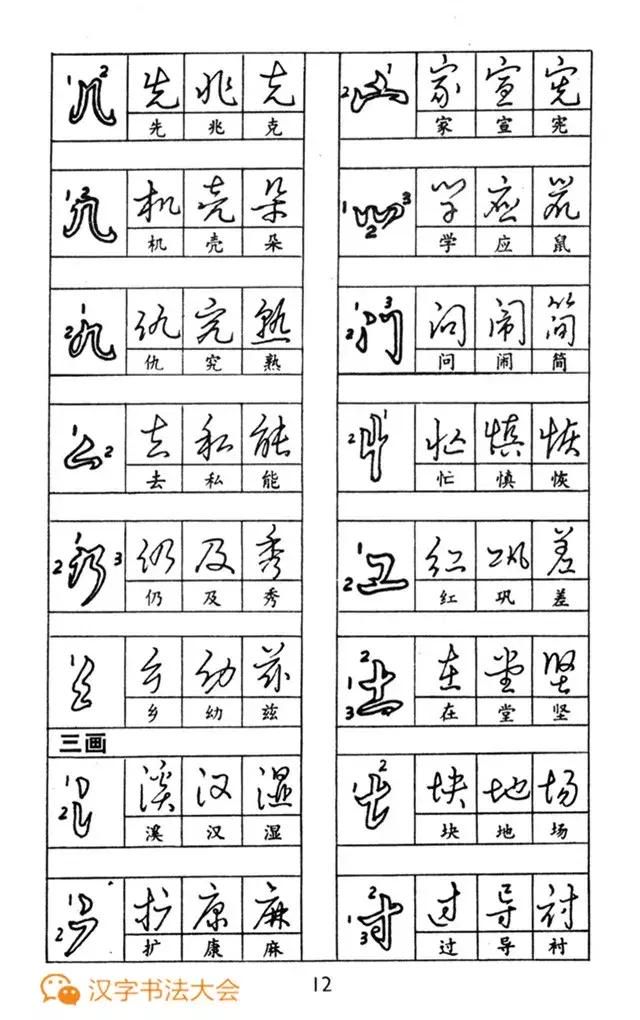 1 2 先 兆 克
先 兆 克
1 2 机 壳 朵
机 壳 朵
1 2 仇 究 熟
仇 究 熟
1 2 去 私 能
去 私 能
1 2 3 仍 及 秀
仍 及 秀
1 乡 幼 兹
乡 幼 兹
三画
1 2 溪 汉 湿
溪 汉 湿
1 2 扩 康 麻
扩 康 麻
1 2 家 宣 宪
家 宣 宪
1 2 3 学 应 鼠
学 应 鼠
1 2 3 问 闹 简
问 闹 简
1 2 忙 慎 恢
忙 慎 恢
1 2 红 巩 差
红 巩 差
1 2 3 在 堂 坚
在 堂 坚
1 2 块 地 场
块 地 场
1 2 3 过 导 衬
过 导 衬
汉字书法大会
12